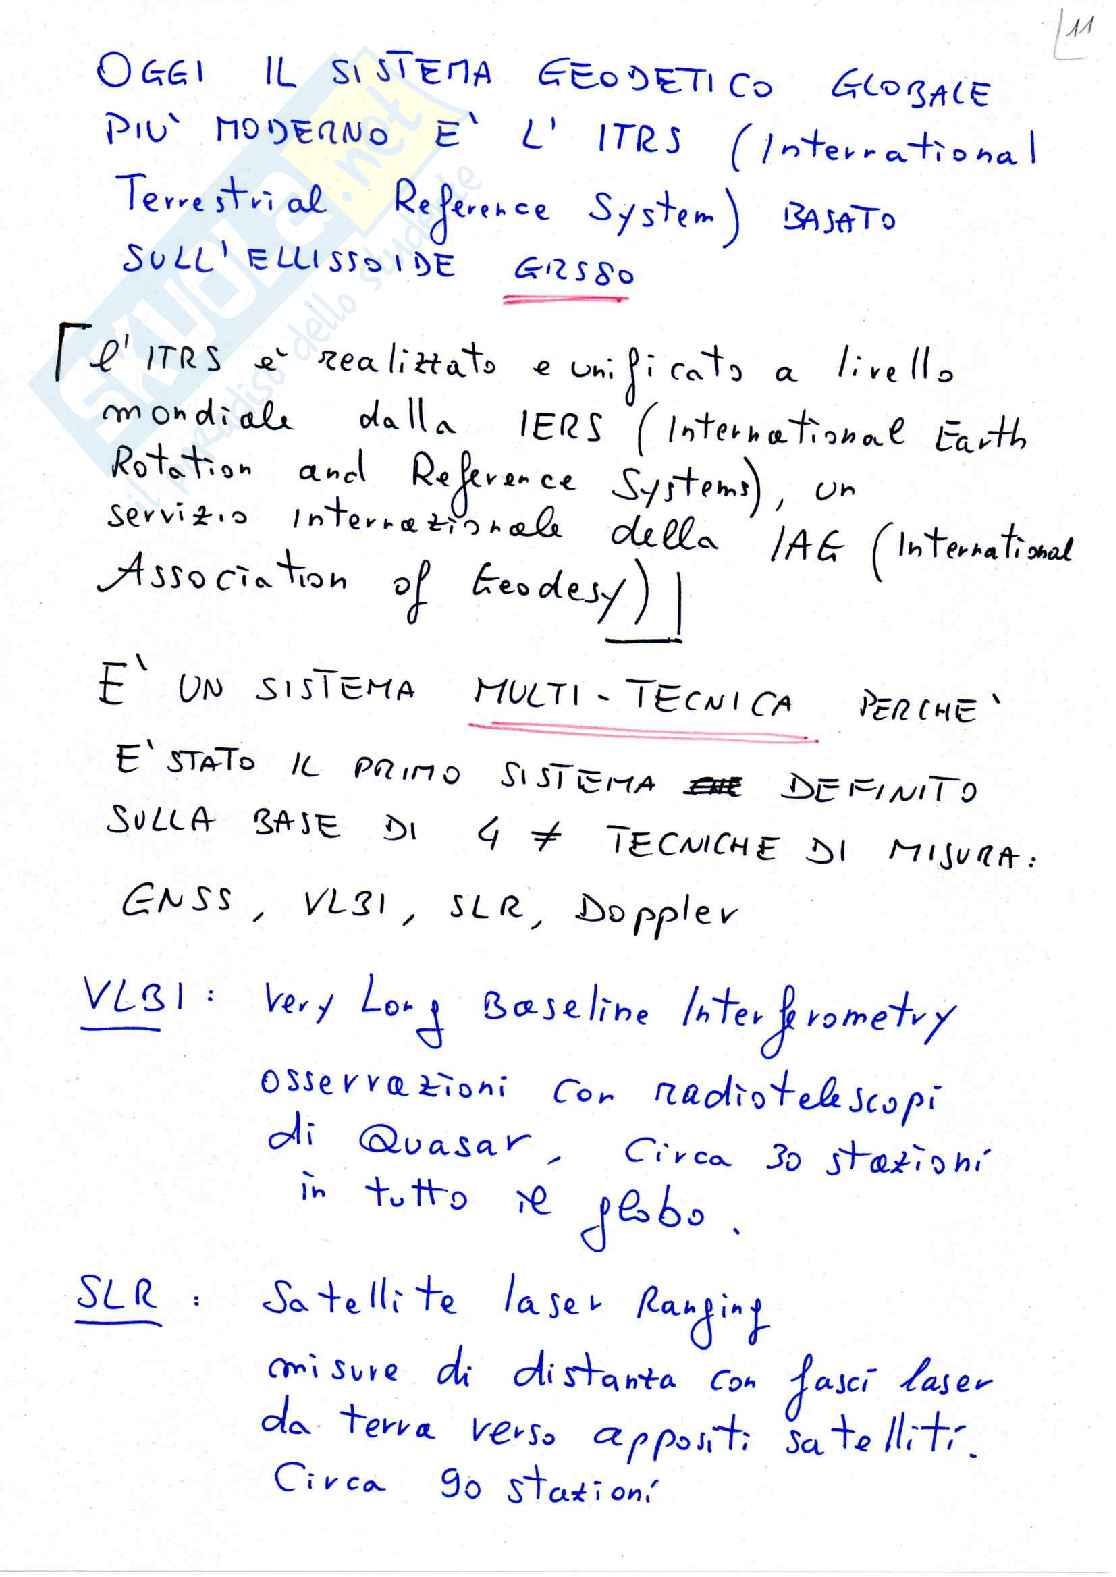 11
OGGI IL SISTEMA GEODETICO GLOBALE
PIU' MODERNO E' L' ITRS (International
Terrestrial Reference System) BASATO
SULL'ELLISSOIDE GRS80
l'ITRS e' realizzato e unificato a livello
mondiale dalla IERS (International Earth
Rotation and Reference Systems), un
servizio internazionale della IAG (International
Association of Geodesy)
E' UN SISTEMA MULTI-TECNICA PERCHE'
E' STATO IL PRIMO SISTEMA DEFINITO
SULLA BASE DI 4 ≠ TECNICHE DI MISURA:
GNSS, VLBI, SLR, Doppler
VLBI: Very Long Baseline Interferometry
osservazioni con radiotelescopi
di Quasar, Circa 30 stazioni
in tutto il globo.
SLR: Satellite laser Ranging
misure di distanza con fasci laser
da terra verso appositi satelliti.
Circa 90 stazioni
SKUOLA.net
il paradiso dello studente